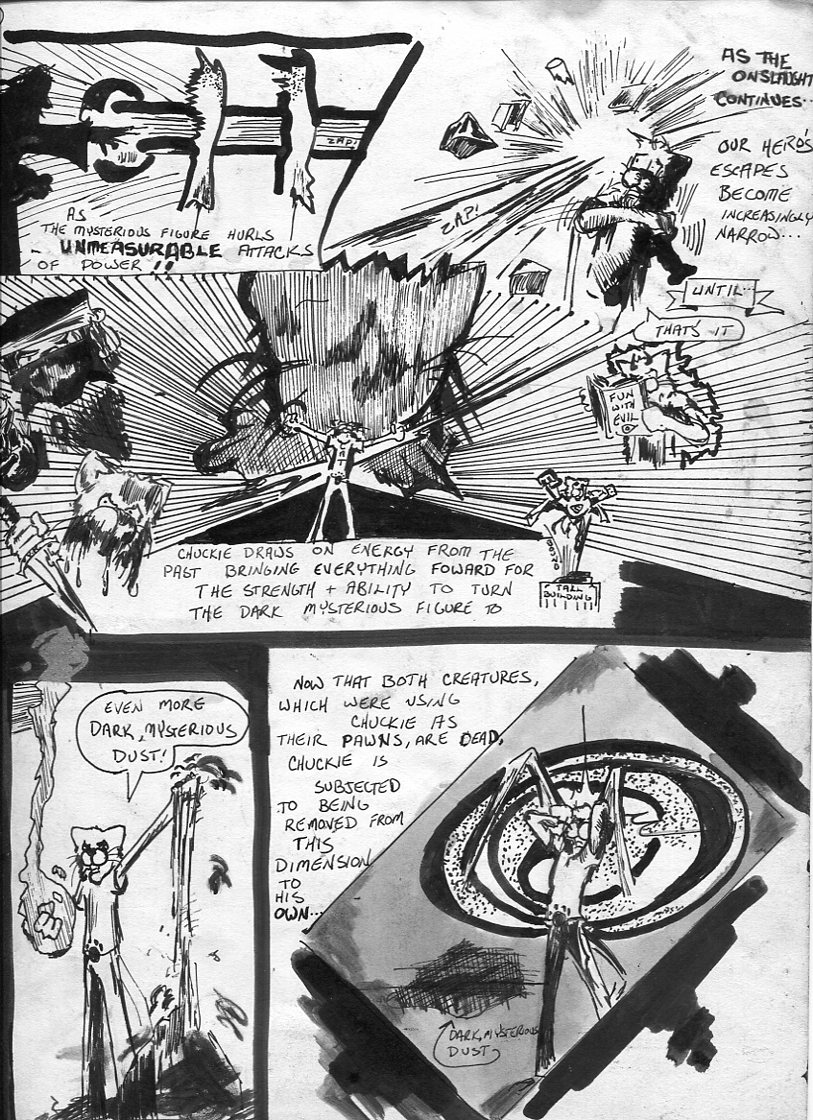 ZAP!
AS
THE MYSTERIOUS FIGURE HURLS
... UNMEASURABLE ATTACKS
OF POWER!!
AS THE
ONSLAUGHT
CONTINUES...
OUR HERO'S
ESCAPES
BECOME
INCREASINGLY
NARROW...
ZAP!
UNTIL...
THAT'S IT
FUN
WITH
EVIL
TALL
BUILDING
CHUCKIE DRAWS ON ENERGY FROM THE
PAST BRINGING EVERYTHING FOWARD FOR
THE STRENGTH + ABILITY TO TURN
THE DARK MYSTERIOUS FIGURE TO
EVEN MORE
DARK, MYSTERIOUS
DUST!
NOW THAT BOTH CREATURES,
WHICH WERE USING
CHUCKIE AS
THEIR PAWNS, ARE DEAD,
CHUCKIE IS
SUBJECTED
TO BEING
REMOVED FROM
THIS
DIMENSION
TO
HIS
OWN...
DARK, MYSTERIOUS
DUST